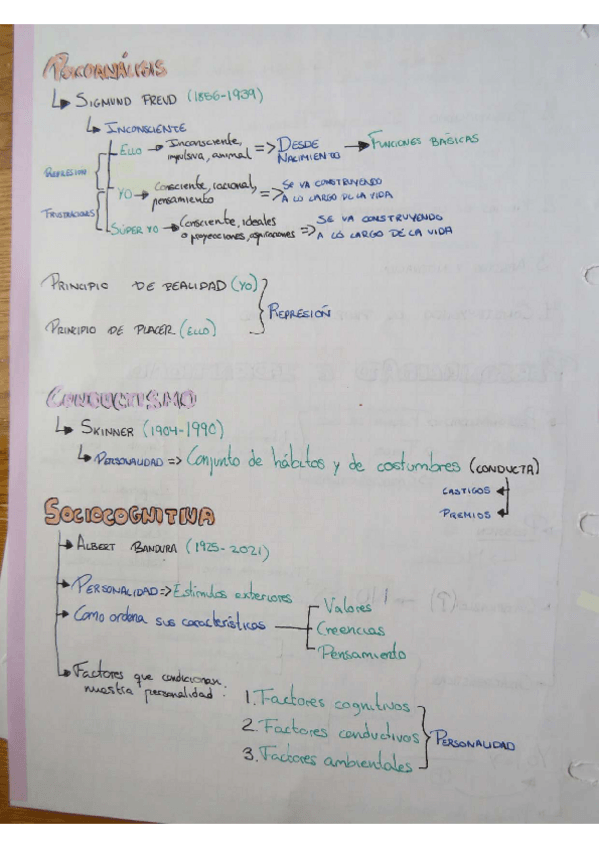 PSICOANÁLISIS
↳ SIGMUND FREUD (1856-1939)
↳ INCONSCIENTE
ELLO → Inconsciente, impulsiva, animal => DESDE NACIMIENTO → FUNCIONES BÁSICAS
REPRESIÓN
YO → Consciente, racional, pensamiento => SE VA CONSTRUYENDO A LO LARGO DE LA VIDA
FRUSTRACIONES
SÚPER YO → Consciente, ideales o proyecciones, aspiraciones => SE VA CONSTRUYENDO A LO LARGO DE LA VIDA
PRINCIPIO DE REALIDAD (YO)
REPRESIÓN
PRINCIPIO DE PLACER (ELLO)
CONDUCTISMO
↳ SKINNER (1904-1990)
↳ PERSONALIDAD => Conjunto de hábitos y de costumbres (CONDUCTA)
CASTIGOS
PREMIOS
SOCIOCOGNITIVA
→ ALBERT BANDURA (1925-2021)
→ PERSONALIDAD => Estímulos exteriores
→ Como ordena sus características
Valores
Creencias
Pensamiento
→ Factores que condicionan nuestra personalidad:
1. Factores cognitivos
2. Factores conductivos
3. Factores ambientales
PERSONALIDAD